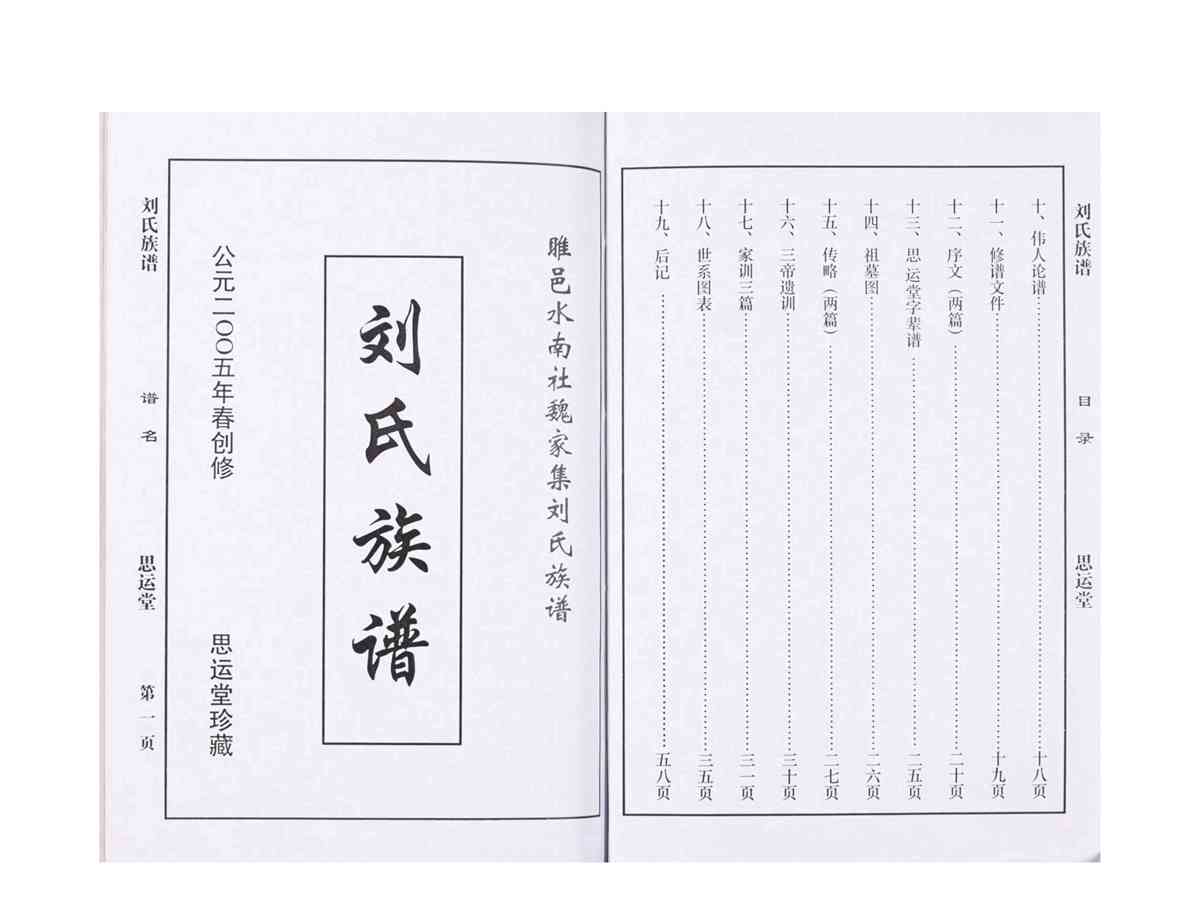 刘氏族谱
目录
思运堂
十、伟人论谱……十八页
十一、修谱文件……十九页
十二、序文（两篇）……二十页
十三、思运堂字辈谱……二五页
十四、祖墓图……二六页
十五、传略（两篇）……二七页
十六、三帝遗训……三十页
十七、家训三篇……三一页
十八、世系图表……三五页
十九、后记……五八页
睢邑水南社魏家集刘氏族谱
刘氏族谱
公元二〇〇五年春创修
思运堂珍藏
刘氏族谱
谱名
思运堂
第一页